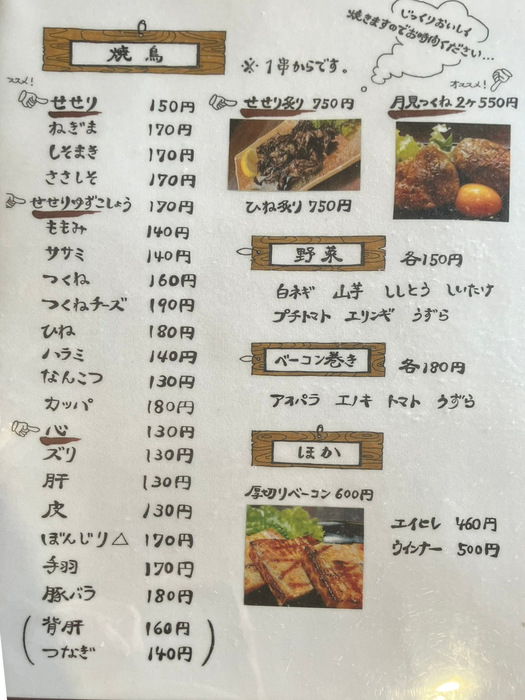 焼鳥
※1串からです。
じっくりおいしく
焼きますのでお時間ください…
ススメ!
せせり 150円
ねぎま 170円
しそまき 170円
ささしそ 170円
せせりゆずこしょう 170円
ももみ 140円
ササミ 140円
つくね 160円
つくねチーズ 190円
ひね 180円
ハラミ 140円
なんこつ 130円
カッパ 180円
心 130円
ズリ 130円
肝 130円
皮 130円
ぼんじり△ 170円
手羽 170円
豚バラ 180円
(背肝 160円
つなぎ 140円)
せせり炙り 750円
ひね炙り 750円
オススメ!
月見つくね2ヶ550円
野菜 各150円
白ネギ 山芋 ししとう しいたけ
プチトマト エリンギ うずら
ベーコン巻き 各180円
アスパラ エノキ トマト うずら
ほか
厚切りベーコン 600円
エイヒレ 460円
ウインナー 500円